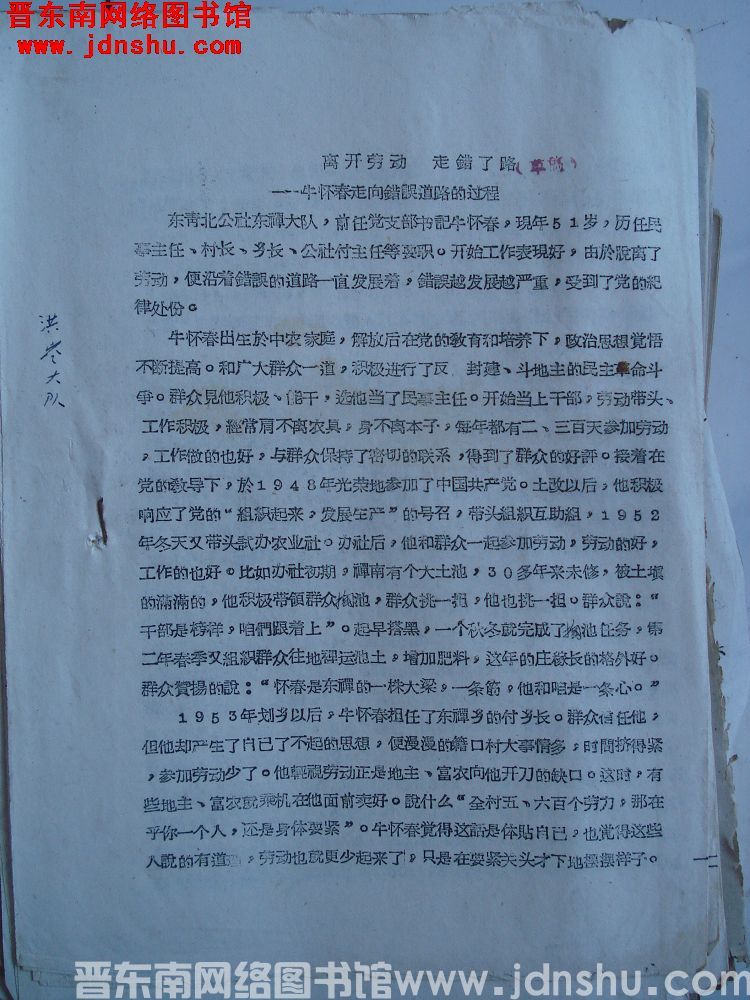 晋东南网络图书馆
www.jdnshu.com
离开劳动 走錯了路(草稿)
——牛怀春走向錯誤道路的过程
东青北公社东禪大队,前任党支部书記牛怀春,現年51岁,历任民
事主任、村长、乡长、公社付主任等要职。开始工作表現好,由於脫离了
劳动,便沿着錯誤的道路一直发展着,錯誤越发展越严重,受到了党的紀
律处份。
牛怀春出生於中农家庭,解放后在党的敎育和培养下,政治思想覚悟
不断提高。和广大群众一道,积极进行了反 封建、斗地主的民主革命斗
爭。群众見他积极、能干,选他当了民事主任。开始当上干部,劳动带头、
工作积极,經常肩不离农具,身不离本子,每年都有二、三百天参加劳动
,工作做的也好,与群众保持了密切的联系,得到了群众的好評。接着在
党的敎导下,於1948年光荣地参加了中国共产党。土改以后,他积极
响应了党的“組織起来,发展生产”的号召,带头組织互助組,1952
年冬天又带头試办农业社。办社后,他和群众一起参加劳动,劳动的好,
工作的也好。比如办社初期,禪南有个大土池,30多年来未修,被土填
的滿滿的,他积极带領群众挖池,群众挑一担,他也挑一担。群众說:“
干部是榜样,咱們跟着上”。起早搭黑,一个秋冬就完成了挖池任务,第
二年春季又組织群众往地裡运池土,增加肥料,这年的庄稼长的格外好。
群众賛揚的說:“怀春是东禪的一株大梁,一条筋,他和咱是一条心。”
1953年划乡以后,牛怀春担任了东禪乡的付乡长。群众信任他,
但他却产生了自己了不起的思想,便漫漫的籍口村大事情多,时間挤得紧
,参加劳动少了。他輕視劳动正是地主、富农向他开刀的缺口。这时,有
些地主、富农就乘机在他面前卖好。說什么“全村五、六百个劳力,那在
乎你一个人,还是身体要紧”。牛怀春覚得这話是体貼自己,也覚得这些
人說的有道,劳动也就更少起来了,只是在要紧关头才下地摆摆样子。
洪岺大队
晋东南网络图书馆 www.jdnshu.com